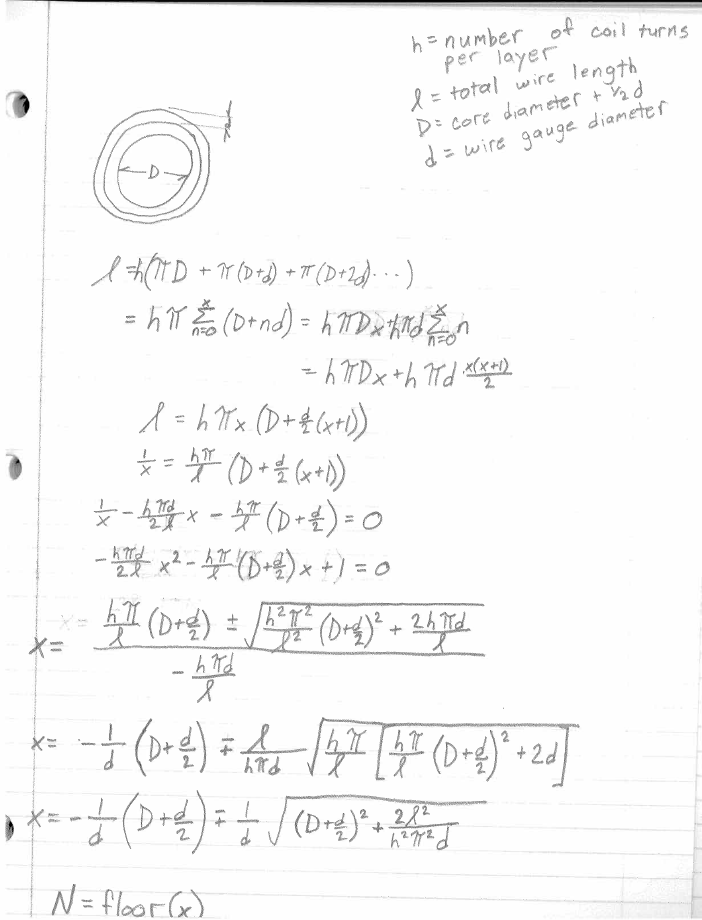 h = number of coil turns
per layer
l = total wire length
D = core diameter + 1/2 d
d = wire gauge diameter
d
D
l = h(πD + π(D+d) + π(D+2d)...)
= hπ Σ_{n=0}^{x} (D+nd) = hπDx + hπd Σ_{n=0}^{x} n
= hπDx + hπd x(x+1)/2
l = hπx (D + d/2 (x+1))
1/x = hπ/l (D + d/2 (x+1))
1/x - hπd/2l x - hπ/l (D + d/2) = 0
- hπd/2l x² - hπ/l (D + d/2) x + 1 = 0
x = (hπ/l (D + d/2) ± √(h²π²/l² (D + d/2)² + 2hπd/l)) / (- hπd/l)
x = - 1/d (D + d/2) ∓ l/hπd √(hπ/l [hπ/l (D + d/2)² + 2d])
x = - 1/d (D + d/2) ∓ 1/d √((D + d/2)² + 2l²/h²π²d)
N = floor(x)